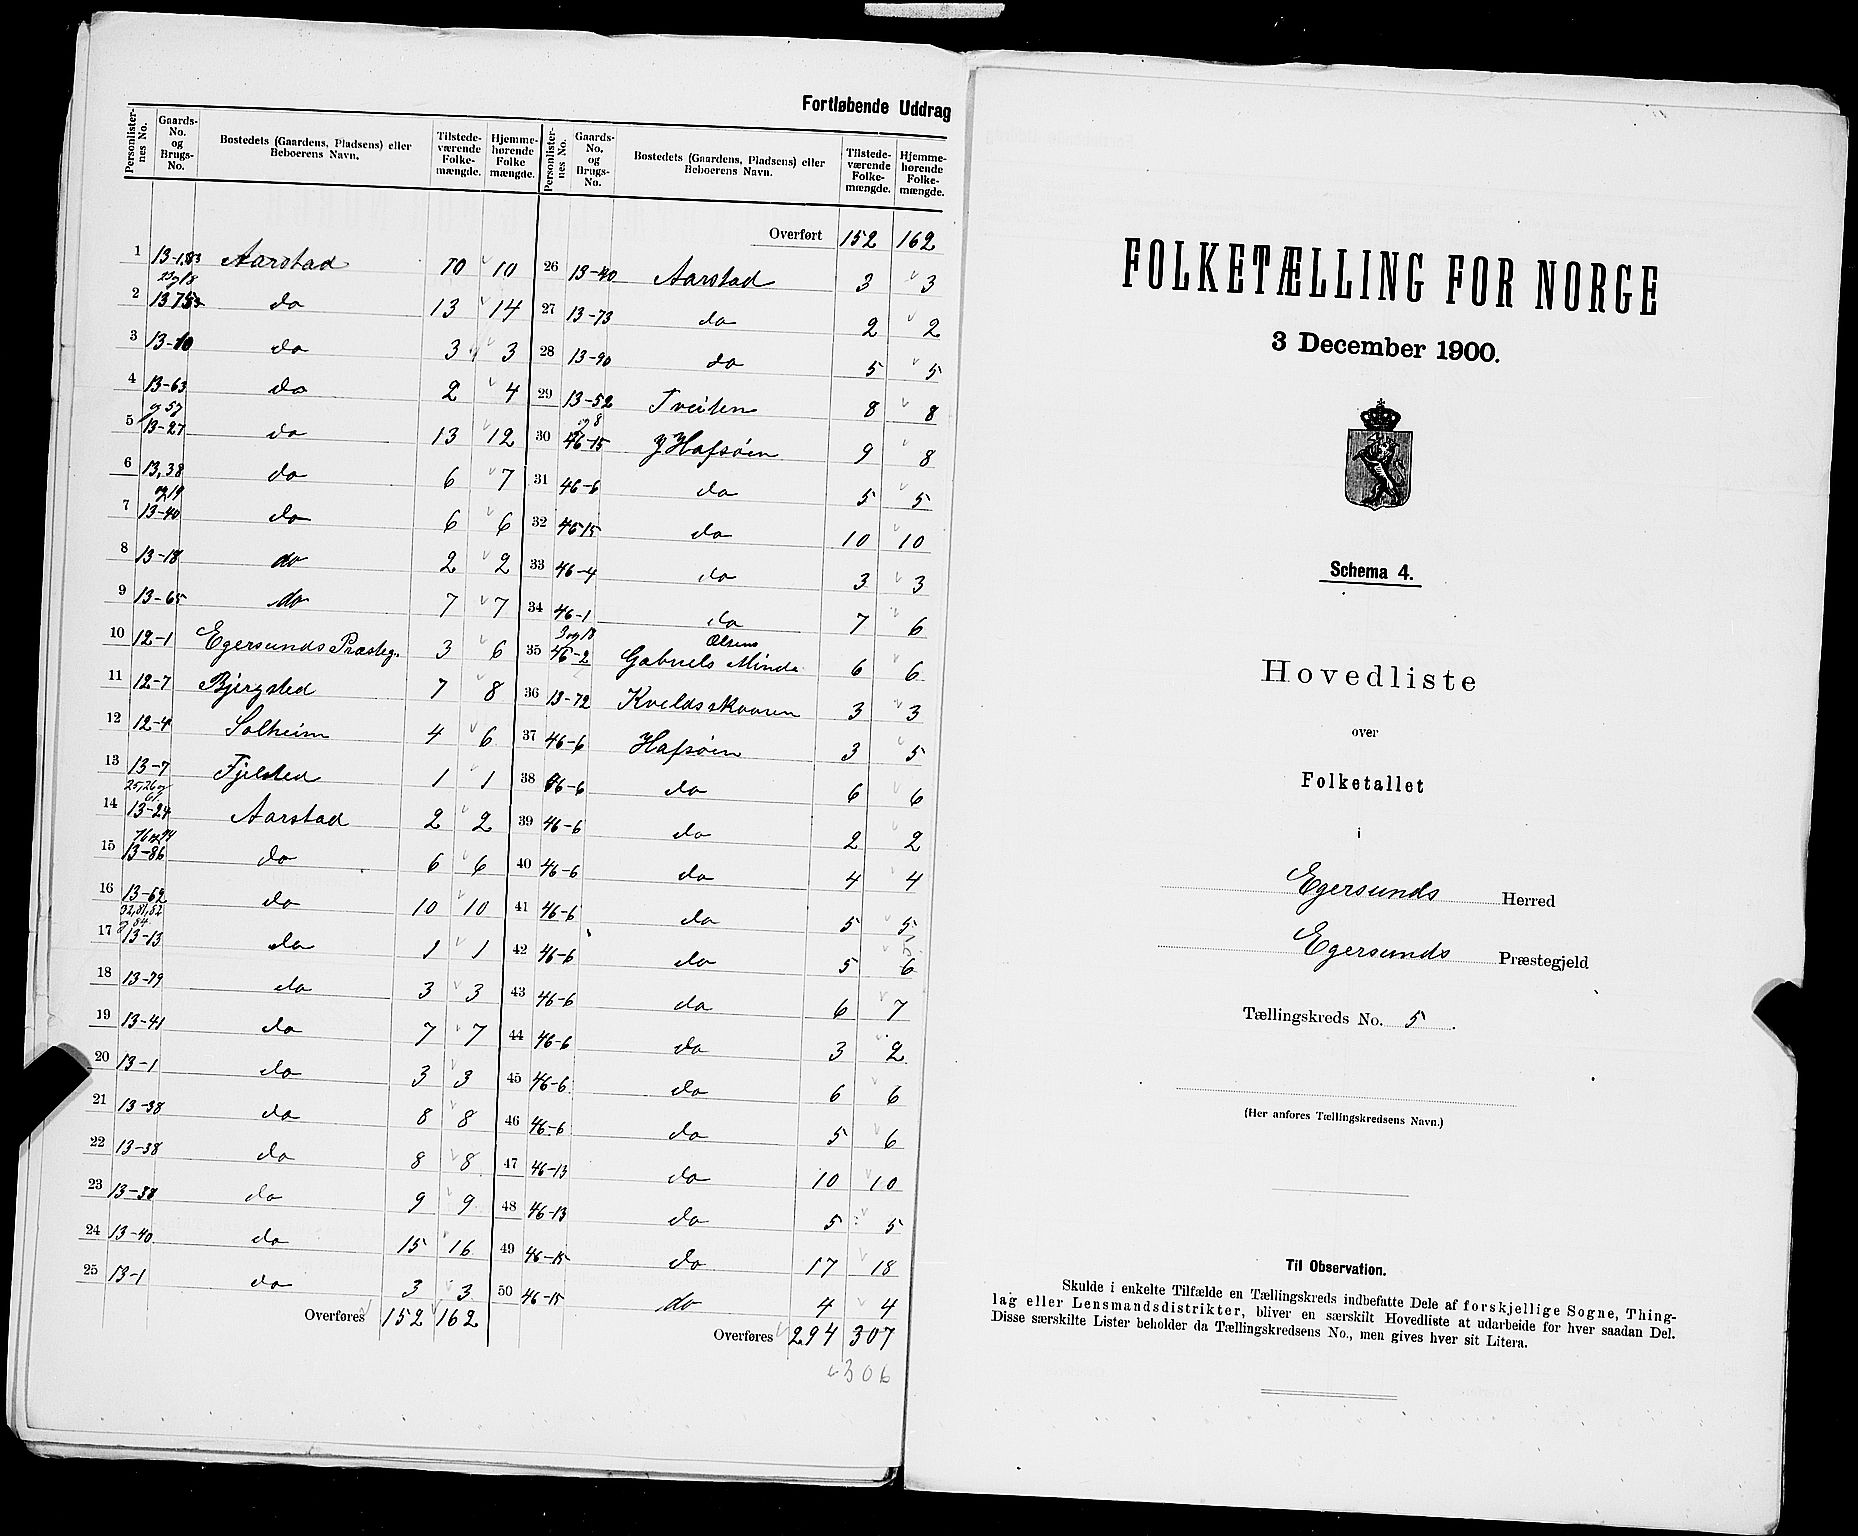 Fortløbende Uddrag
Personlister-nes No. Gaards-No. og Brugs-No. Bostedets (Gaardens, Pladsens) eller Beboerens Navn. Tilstede-værende Folke-mængde. Hjemme-hørende Folke mængde. Personlister-nes No. Gaards-No. og Brugs-No. Bostedets (Gaardens, Pladsens) eller Beboerens Navn. Tilstede-værende Folke-mængde. Hjemme-hørende Folke-mængde.
Overført 152 162
1 Aarstad 10 10
2 do 13 14
3 13-10 do 3 3
4 13-63 do 2 4
og 57
5 13-27 do 13 12
6 13,38 do 6 7
og 19
7 13-40 do 6 6
8 13-18 do 2 2
9 13-65 do 7 7
10 12-1 Egersunds Præsteg. 3 6
11 12-7 Bjergsted 7 8
12 12-4 Solheim 4 6
13 13-7 Fjelsted 1 1
25,26 og 61
14 13-24 Aarstad 2 2
76 og 94
15 13-86 do 6 6
16 13-62 do 10 10
32,81,82 og 84
17 13-13 do 1 1
18 13-79 do 3 3
19 13-41 do 7 7
20 13-1 do 3 3
21 13-38 do 8 8
22 13-38 do 8 8
23 13-38 do 9 9
24 13-40 do 15 16
25 13-1 do 3 3
Overføres 152 162
26 13-40 Aarstad 3 3
27 13-73 do 2 2
28 13-90 do 5 5
29 13-52 Tveiten 8 8
og 8
30 46-15 Hafsøen 9 8
31 46-6 do 5 5
32 46-15 do 10 10
33 46-4 do 3 3
34 46-1 do 7 6
3 og 18 Olsens
35 46-2 Gabriels Minde 6 6
36 13-72 Kveldsskaaren 3 3
37 46-6 Hafsøen 3 5
38 46-6 do 6 6
39 46-6 do 2 2
40 46-6 do 4 4
41 46-6 do 5 5
42 46-6 do 5 6
43 46-6 do 6 7
44 46-6 do 3 2
45 46-6 do 6 6
46 46-6 do 5 6
47 46-13 do 10 10
48 46-13 do 5 5
49 46-15 do 17 18
50 46-15 do 4 4
Overføres 294 307
306
FOLKETÆLLING FOR NORGE
3 December 1900.
Schema 4.
Hovedliste
over
Folketallet
i
Egersunds Herred
Egersunds Præstegjeld
Tællingskreds No. 5.
(Her anføres Tællingskredsens Navn.)
Til Observation.
Skulde i enkelte Tilfælde en Tællingskreds indbefatte Dele af forskjellige Sogne, Thing-
lag eller Lensmandsdistrikter, bliver en særskilt Hovedliste at udarbeide for hver saadan Del.
Disse særskilte Lister beholder da Tællingskredsens No., men gives hver sit Litera.